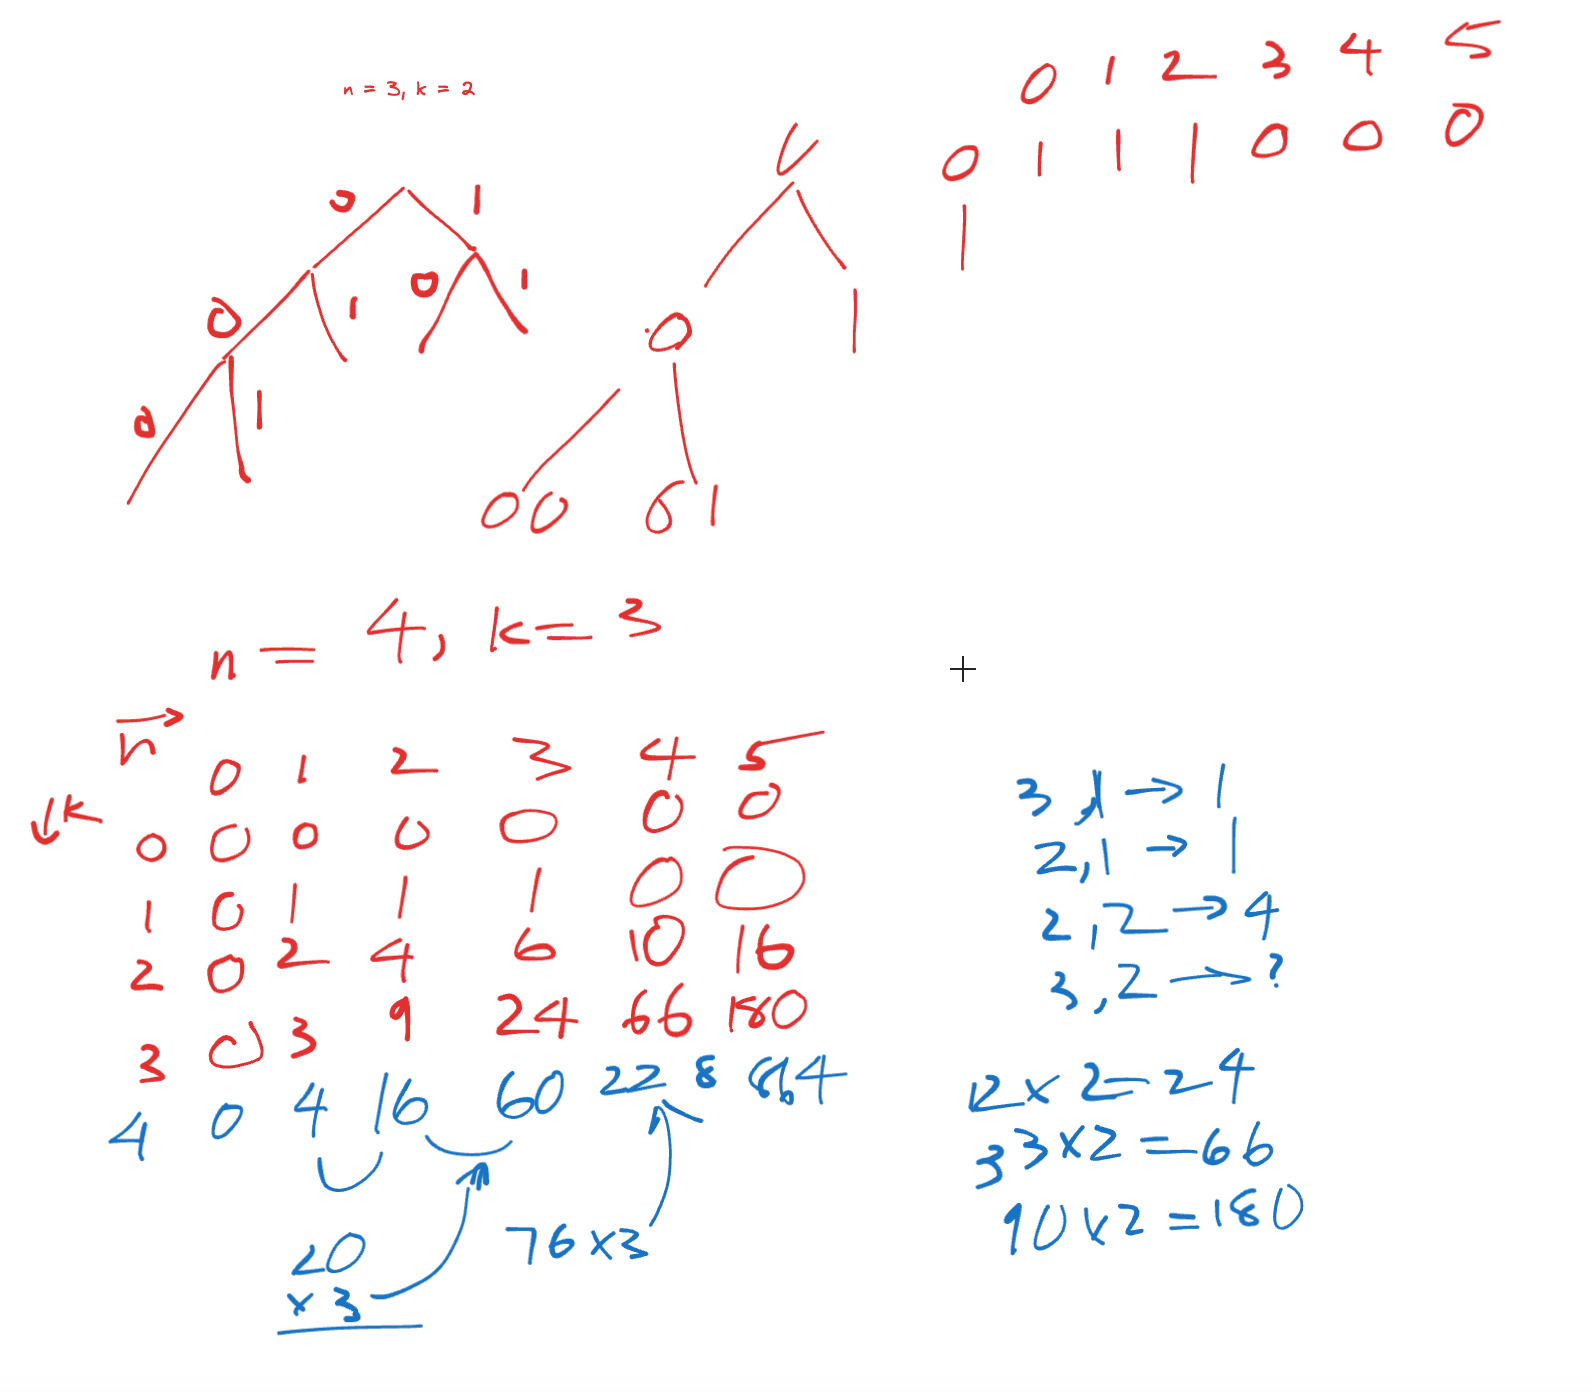 n = 3, k = 2
0 1 2 3 4 5
0 1 1 1 0 0 0
1
0 1
0 1 0 1
0 1
0 1
00 01
n = 4, k = 3
n
0 1 2 3 4 5
k
0 0 0 0 0 0 0
1 0 1 1 1 0 0
2 0 2 4 6 10 16
3 0 3 9 24 66 180
4 0 4 16 60 228 864
20
× 3
76 × 3
3,1 → 1
2,1 → 1
2,2 → 4
3,2 → ?
12 × 2 = 24
33 × 2 = 66
90 × 2 = 180